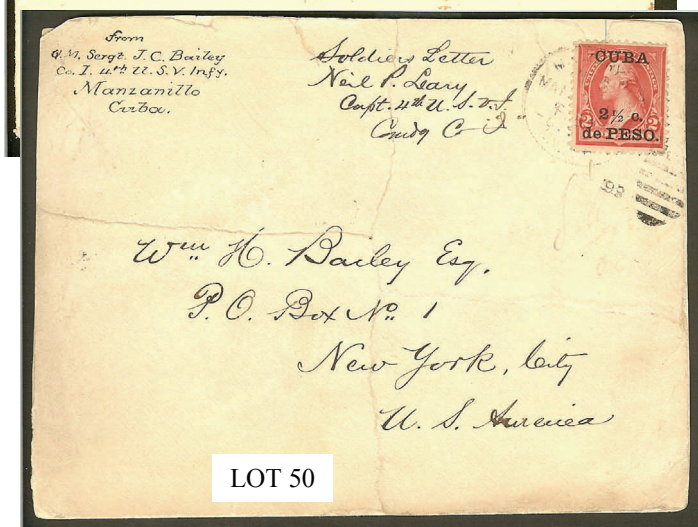 from
Q.M. Sergt. J. C. Bailey
Co. I. 4th U.S.V. Infy.
Manzanillo
Cuba.
Soldiers Letter
Neil P. Leary
Capt. 4th U.S.V.I.
Comdg Co I
CUBA
2½ c.
de PESO.
2
Wm H. Bailey Esq.
P.O. Box No. 1
New York, City
U.S. America
LOT 50